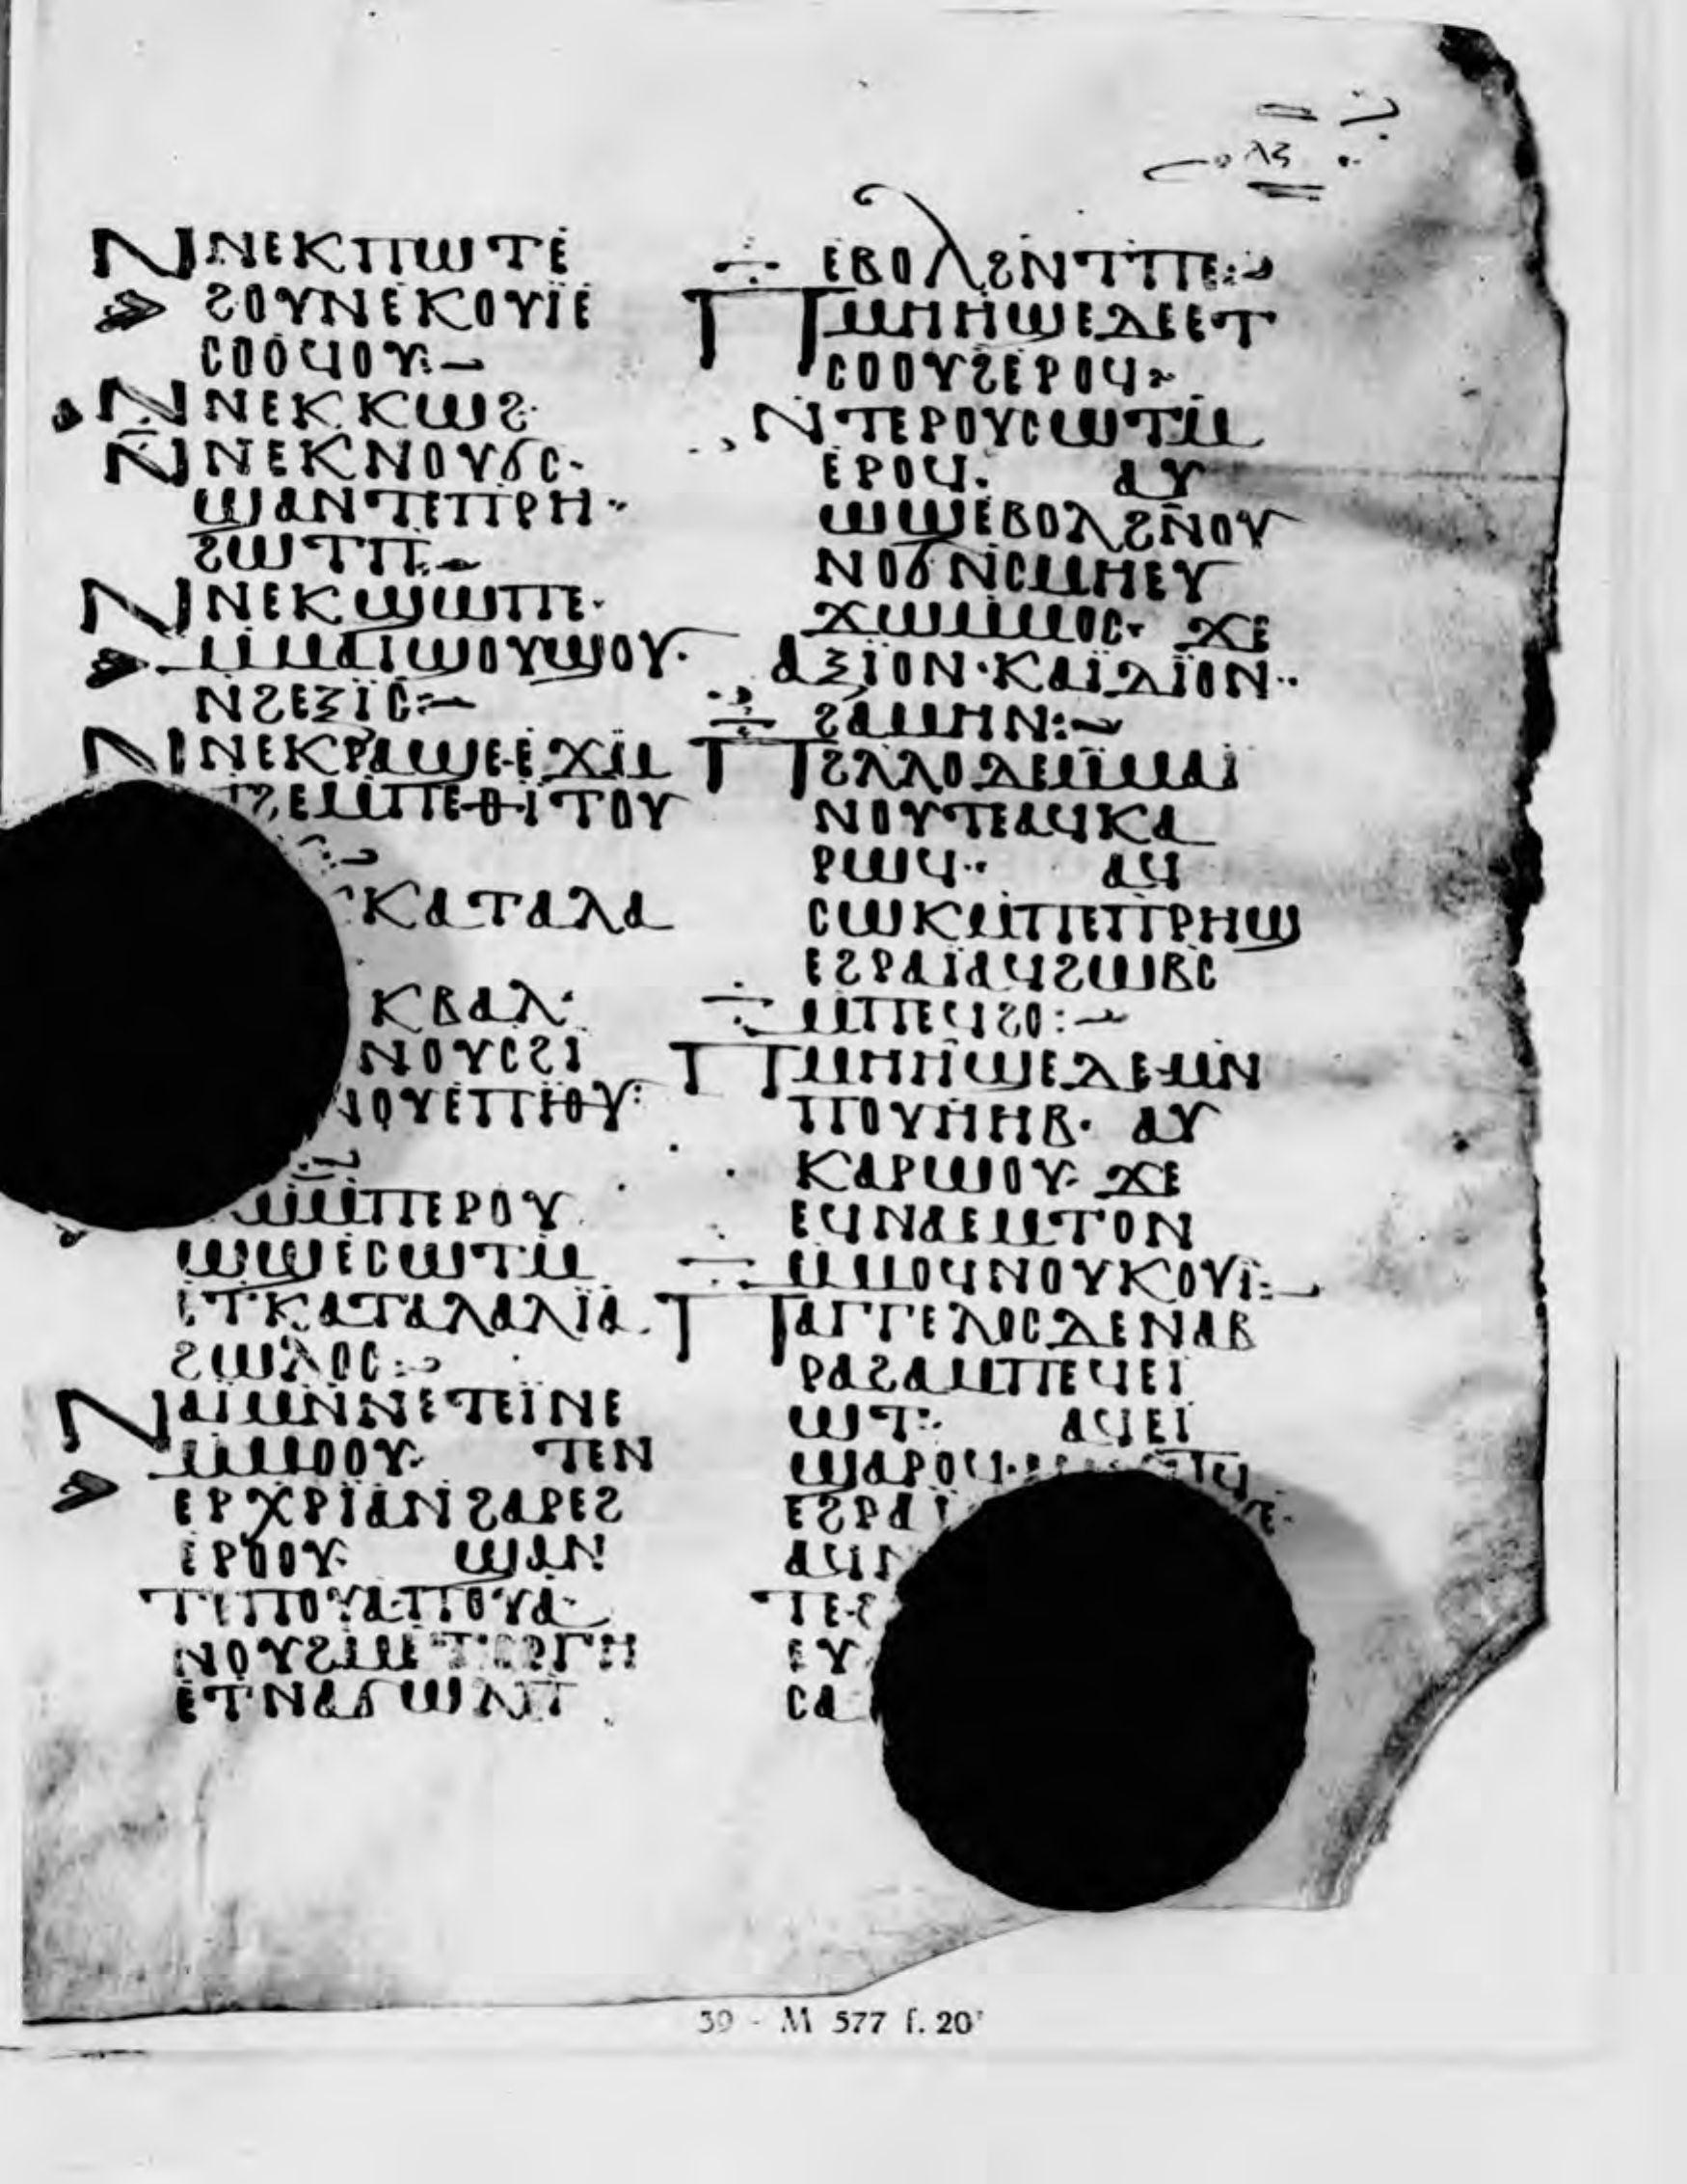 ⲗⲍ
ⲛⲛⲉⲕⲡⲱⲧⲉ
ϩⲟⲩⲛⲉⲕⲟⲩⲓⲉ
ⲥⲟⲟϥⲟⲩ:—
ⲛⲛⲉⲕⲕⲱϩ·
ⲛⲛⲉⲕⲛⲟⲩϭⲥ·
ϣⲁⲛⲧⲉⲡⲣⲏ·
ϩⲱⲧⲡ:—
ⲛⲛⲉⲕϣⲱⲡⲉ·
ⲙⲙⲁⲓϣⲟⲩϣⲟⲩ·
ⲛϩⲉⲝⲓⲥ:—
ⲛⲛⲉⲕⲣⲁϣⲉⲉϫⲙ
ϩⲉⲙⲡⲉⲑⲓⲧⲟⲩ
ⲕⲁⲧⲁⲗⲁ
ⲕⲃⲁⲗ·
ⲛⲟⲩⲥϩⲓ
ⲛⲟⲩⲉⲡⲓⲑⲩ:
ⲙⲡⲉⲣⲟⲩ
ⲱϣⲉⲥⲱⲧⲙ
ⲉⲧⲕⲁⲧⲁⲗⲁⲗⲓⲁ·
ϩⲱⲗⲟⲥ:—
ⲛⲁⲓⲙⲛⲛⲉⲧⲉⲓⲛⲉ
ⲙⲙⲟⲟⲩ· ⲧⲉⲛ
ⲉⲣⲭⲣⲓⲁⲛϩⲁⲣⲉϩ
ⲉⲣⲟⲟⲩ· ϣⲁⲛ
ⲧⲉⲡⲟⲩⲁⲡⲟⲩⲁ·
ⲛⲟⲩϩⲙⲉⲧⲟⲣⲅⲏ
ⲉⲧⲛⲁϭⲱⲛⲧ
ⲉⲃⲟⲗϩⲛⲧⲡⲉ:—
ⲡⲙⲏⲏϣⲉⲇⲉⲉⲧ
ⲥⲟⲟⲩϩⲉⲣⲟϥ·
ⲛⲧⲉⲣⲟⲩⲥⲱⲧⲙ
ⲉⲣⲟϥ· ⲁⲩ
ⲱϣⲉⲃⲟⲗϩⲛⲟⲩ
ⲛⲟϭⲛⲥⲙⲏⲉⲩ
ϫⲱⲙⲙⲟⲥ· ϫⲉ
ⲁⲝⲓⲟⲛ·ⲕⲁⲓⲇⲓⲟⲛ··
ϩⲁⲙⲏⲛ:—
ⲡϩⲗⲗⲟⲇⲉⲙⲙⲁⲓ
ⲛⲟⲩⲧⲉⲁϥⲕⲁ
ⲣⲱϥ·· ⲁϥ
ⲥⲱⲕⲙⲡⲉⲡⲣⲏϣ
ⲉϩⲣⲁⲓⲁϥϩⲱⲃⲥ
ⲙⲡⲉϥϩⲟ:—
ⲡⲙⲏⲏϣⲉⲇⲉⲙⲛ
ⲡⲟⲩⲏⲏⲃ· ⲁⲩ
ⲕⲁⲣⲱⲟⲩ· ϫⲉ
ⲉϥⲛⲁⲉⲙⲧⲟⲛ
ⲙⲙⲟϥⲛⲟⲩⲕⲟⲩⲓ:—
ⲡⲁⲅⲅⲉⲗⲟⲥⲇⲉⲛⲁⲃ
ⲣⲁϩⲁⲙⲡⲉϥⲉⲓ
ⲱⲧ: ⲁϥⲉⲓ
ϣⲁⲣⲟϥ·
ⲉϩⲣⲁⲓ
ⲁϥⲛ
ⲧⲉ·
ⲉⲩ
ⲥⲁ
39 - M 577 f. 20ʳ